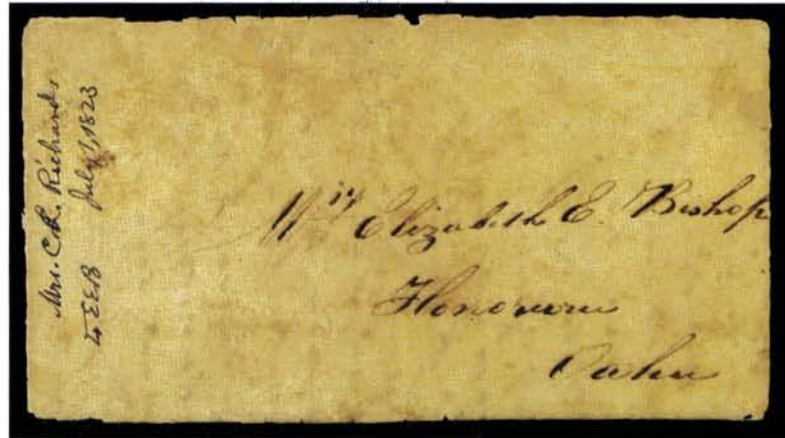 Mrs. C.R. Richards
to EEB July 1, 1823
Mrs Elizabeth E. Bishop
Honoruru
Oahu